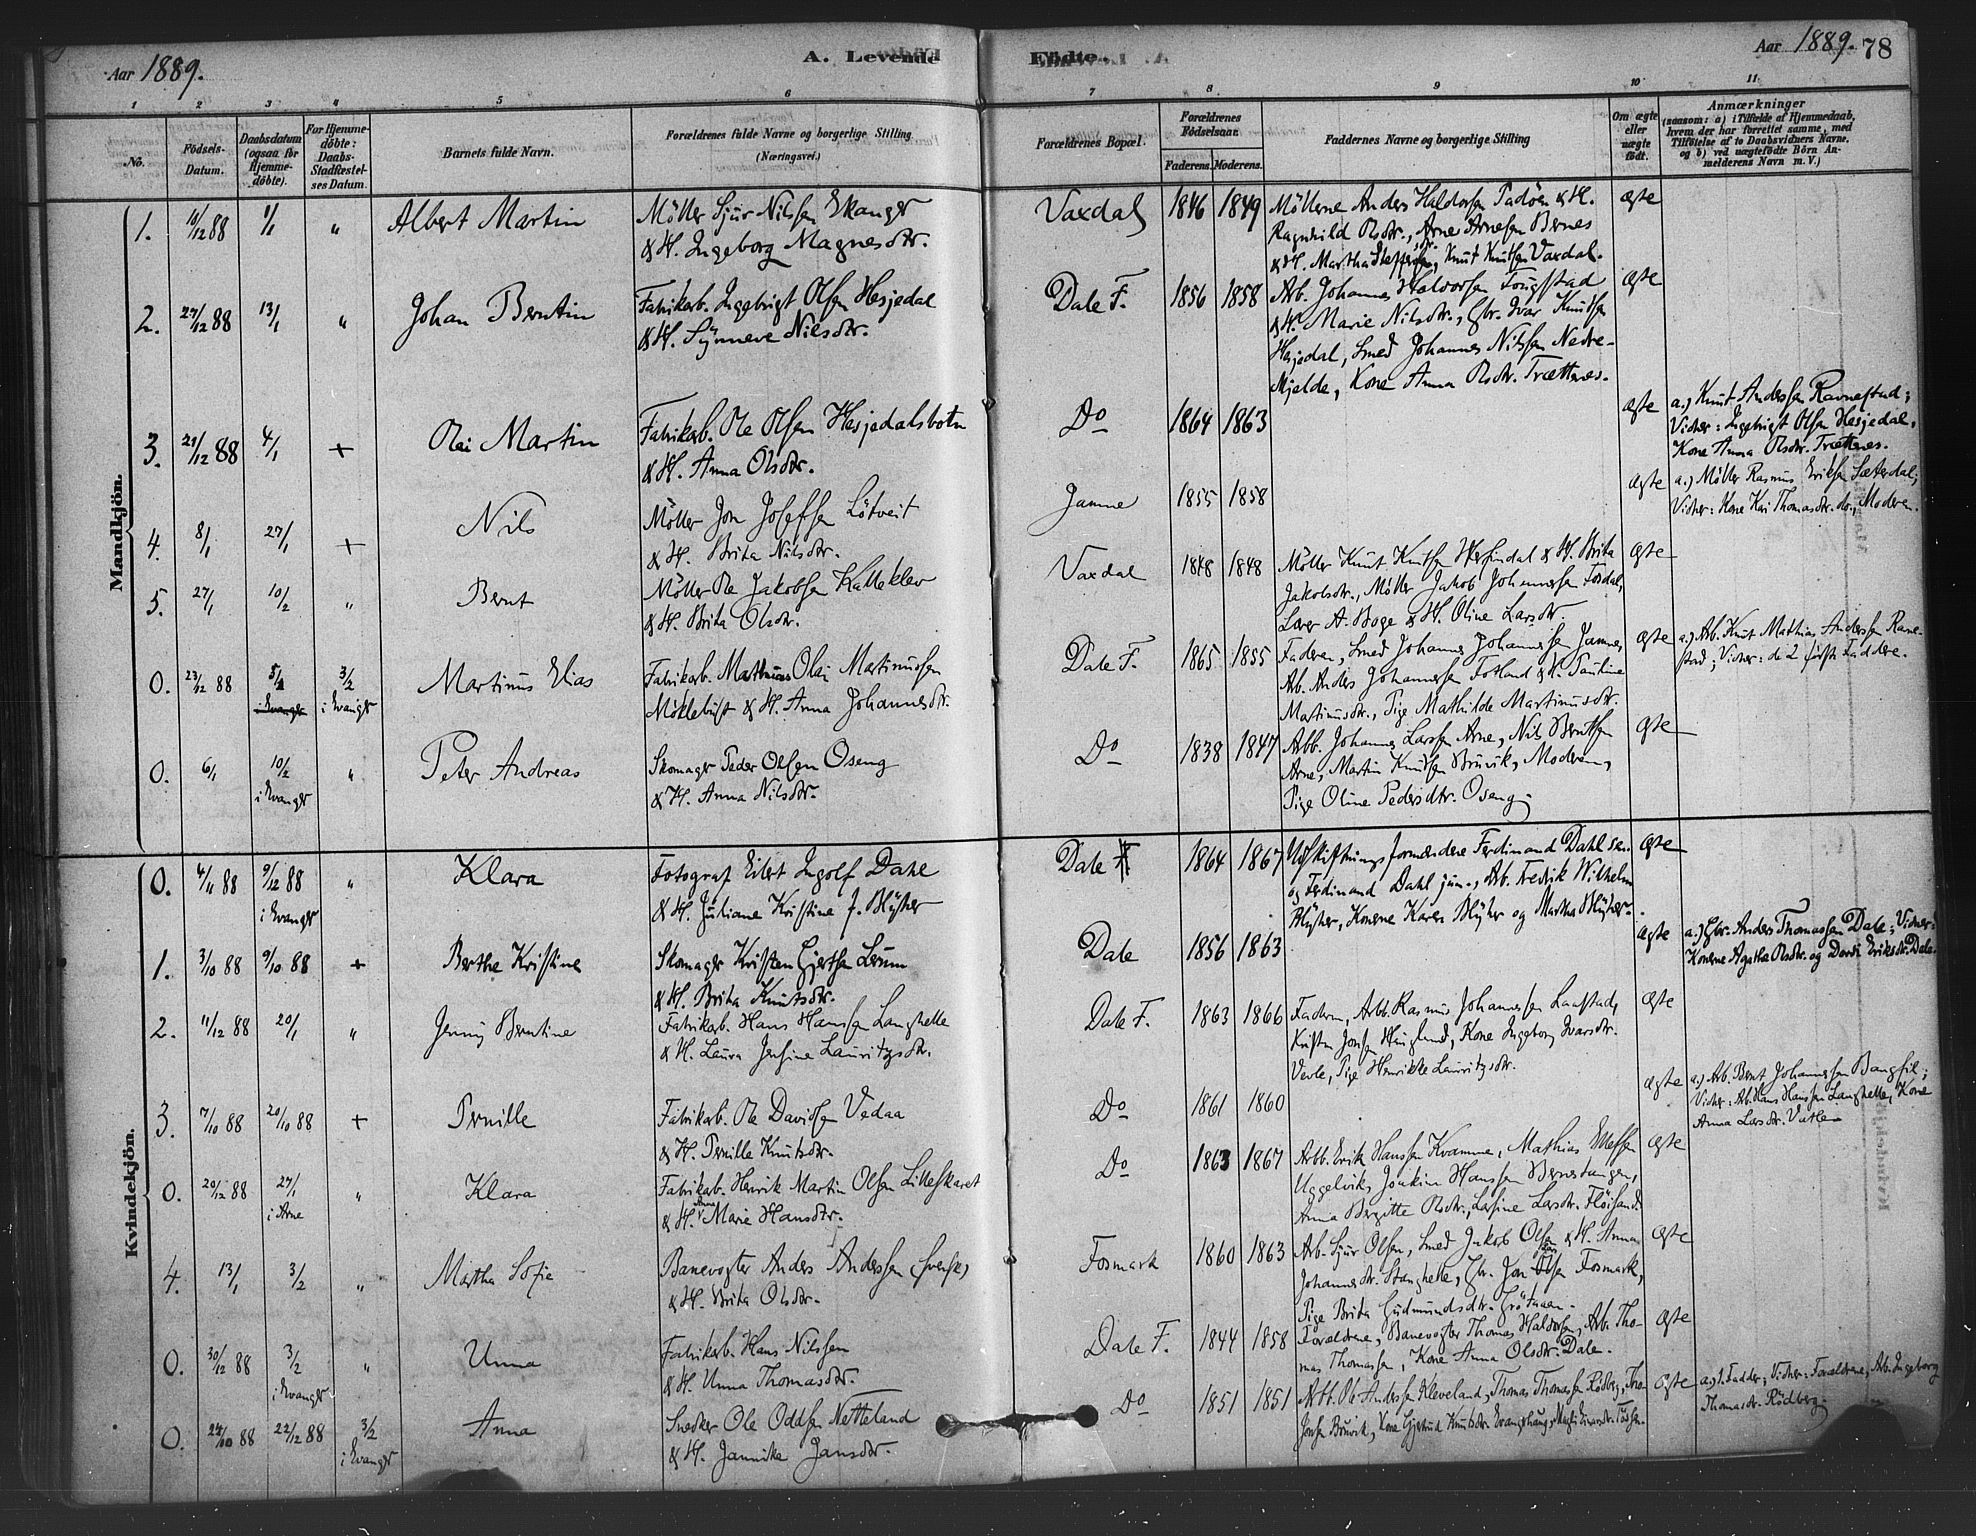 Aar 1889. A. Levende Födte. Aar 1889. 78
1 2 3 4 5 6 7 8 9 10 11
No. Födsels-Datum. Daabsdatum (ogsaa for Hjemme-döbte). For Hjemme-döbte: Daabs-Stadfæstelses Datum. Barnets fulde Navn. Forældrenes fulde Navne og borgerlige Stilling (Næringsvei.) Forældrenes Bopæl. Forældrenes Födselsaar. Faderens. Moderens. Faddernes Navne og borgerlige Stilling Om ægte eller uægte født. Anmærkninger (saasom: a) i Tilfælde af Hjemmedaab, hvem der har forrettet samme, med Tilföielse af to Daabsvidners Navne. og b) ved uægtefödte Börn Anmelderens Navn m. V.)
Mandkjön.
1. 10/12 88 1/1 " Albert Martin Möller Sjur Nilssen Ekanger Vaxdal 1846 1849 Möllerne Anders Haldorsen Tadöen & H. ægte
& H. Ingeborg Magnesdtr. Ragnhild Olsdtr., Arne Arnesen Bernes
& H. Martha Steffensdtr., Knut Knutsen Vaxdal.
2. 27/12 88 13/1 " Johan Berntin Fabrikarb. Ingebrigt Olsen Hesjedal Dale F. 1856 1858 Arb. Johannes Haldorsen Fougstad ægte
& H. Synneve Nilsdtr. & H. Marie Nilsdtr., Gbr. Ivar Knutsen
Hesjedal, Smed Johannes Nilssen Nedre-
Mjelde, Kone Anna Olsdtr. Trættenes.
3. 21/12 88 4/1 + Olai Martin Fabrikarb. Ole Olsen Hesjedalsbotn Do 1864 1863 ægte a.) Knut Anderssen Ravnestad;
& H. Anna Olsdtr. Vidner: Ingebrigt Olsen Hesjedal,
Kone Anna Olsdtr. Trættenes.
4. 8/1 27/1 + Nils Möller Jon Josefsen Lötveit Jamne 1855 1858 ægte a.) Möller Rasmus Eriksen Sæterdal;
& H. Brita Nilsdtr. Vidner: Kone Kari Thomasdtr. do., Moderen.
5. 27/1 10/2 " Bernt Möller Ole Jakobsen Kalleklev Vaxdal 1848 1848 Möller Knut Knutsen Herfindal & H. Brita ægte
& H. Brita Olsdtr. Jakobsdtr., Möller Jakob Johannessen Fosdal,
Lærer A. Boge & H. Oline Larsdtr.
0. 23/12 88 5/1 i Evanger 3/2 i Evanger Martinus Elias Fabrikarb. Mathias Olai Martinussen Dale F. 1865 1855 Faderen, Smed Johannes Johannessen Jamne, ægte a.) Arb. Knut Mathias Anderssen Rave-
Möklebust & H. Anna Johannesdtr. Arb. Anders Johannessen Fotland & H. Pauline stad; Vidner: de 2 förste Faddere.
Martinusdtr., Pige Mathilde Martinusdtr.
0. 6/1 10/2 i Evanger " Peter Andreas Skomager Peder Olsen Oseng Do 1838 1847 Arbb. Johannes Larssen Arne, Nils Berntsen ægte
& H. Anna Nilsdtr. Arne, Martin Knutsen Bruvik, Moderen,
Pige Oline Pedersdtr. Oseng.
Kvindekjön.
0. 4/11 88 9/12 88 i Evanger " Klara Fotograf Eilert Ingolf Dahl Dale F. 1864 1867 Udskiftningsformændene Ferdinand Dahl sen. ægte
& H. Juliane Kristine f. Blyher og Ferdinand Dahl jun., Arb. Fredrik Wilhelm
Blyher, Konerne Karen Blyher og Martha Blyher.
1. 3/10 88 9/10 88 + Berthe Kristine Skomager Kristen Gjertsen Lerum Dale 1856 1863 ægte a.) Gbr. Anders Thomassen Dale; Vidner:
& H. Brita Knutsdtr. Konerne Agatha Olsdtr. og Dordi Eriksdtr. Dale.
2. 11/12 88 20/1 " Jenny Berntine Fabrikarb. Hans Hanssen Langhelle Dale F. 1863 1866 Faderen, Arbb. Rasmus Johannessen Laastad, ægte
& H. Laura Jensine Lauritzsdtr. Kristen Jonsen Haugland, Kone Ingeborg Ivarsdtr.
Pige Henrikke Lauritzsdtr.
3. 7/10 88 20/10 88 + Pernille Fabrikarb. Ole Davidsen Vedaa Do 1861 1860 ægte a.) Arb. Bernt Johannessen Bangfil;
& H. Pernille Knutsdtr. Vidner: Arb. Hans Hanssen Langhelle, Kone
Anna Larsdtr.
0. 20/12 88 27/1 i Arne " Klara Fabrikarb. Henrik Martin Olsen Litleskaret Do 1863 1867 Arbb. Erik Hanssen Kvamme, Mathias Ellefsen ægte
& H. Anna Marie Hansdtr. Uggelvik, Joakim Hanssen Bernestangen,
Anna Bergitte Olsdtr., Larsine Larsdtr. Flöisand.
4. 13/1 3/2 " Martha Sofie Banevogter Anders Anderssen (Svensk) Fosmark 1860 1863 Arb. Sjur Olsen, Smed Jakob Olsen & H. Anna ægte
& H. Brita Olsdtr. Johannesdtr. Stanghelle, Gbr. Jon Olsen Fosmark,
Pige Brita Gudmundsdtr.
0. 30/12 88 3/2 i Evanger " Unna Fabrikarb. Hans Nilssen Dale F. 1844 1858 Forældrene, Banevogter Thomas Haldorsen, Arb. Tho- ægte
& H. Unna Thomasdtr. mas Thomassen, Kone Anna Olsdtr. Dale.
0. 24/10 88 22/12 88 3/2 i Evanger Anna Snedker Ole Oddsen Netteland Do 1851 1851 Arbb. Ole Anderssen Kleveland, Thomas Thomassen Rödberg, ægte a.) 1. Fadder; Vidner: Forældrene, Arb. Ingeborg
& H. Jannika Jansdtr. Jonsen Bruvik, Kone Gjertrud Knutsdtr. Thomasdtr. Rödberg.